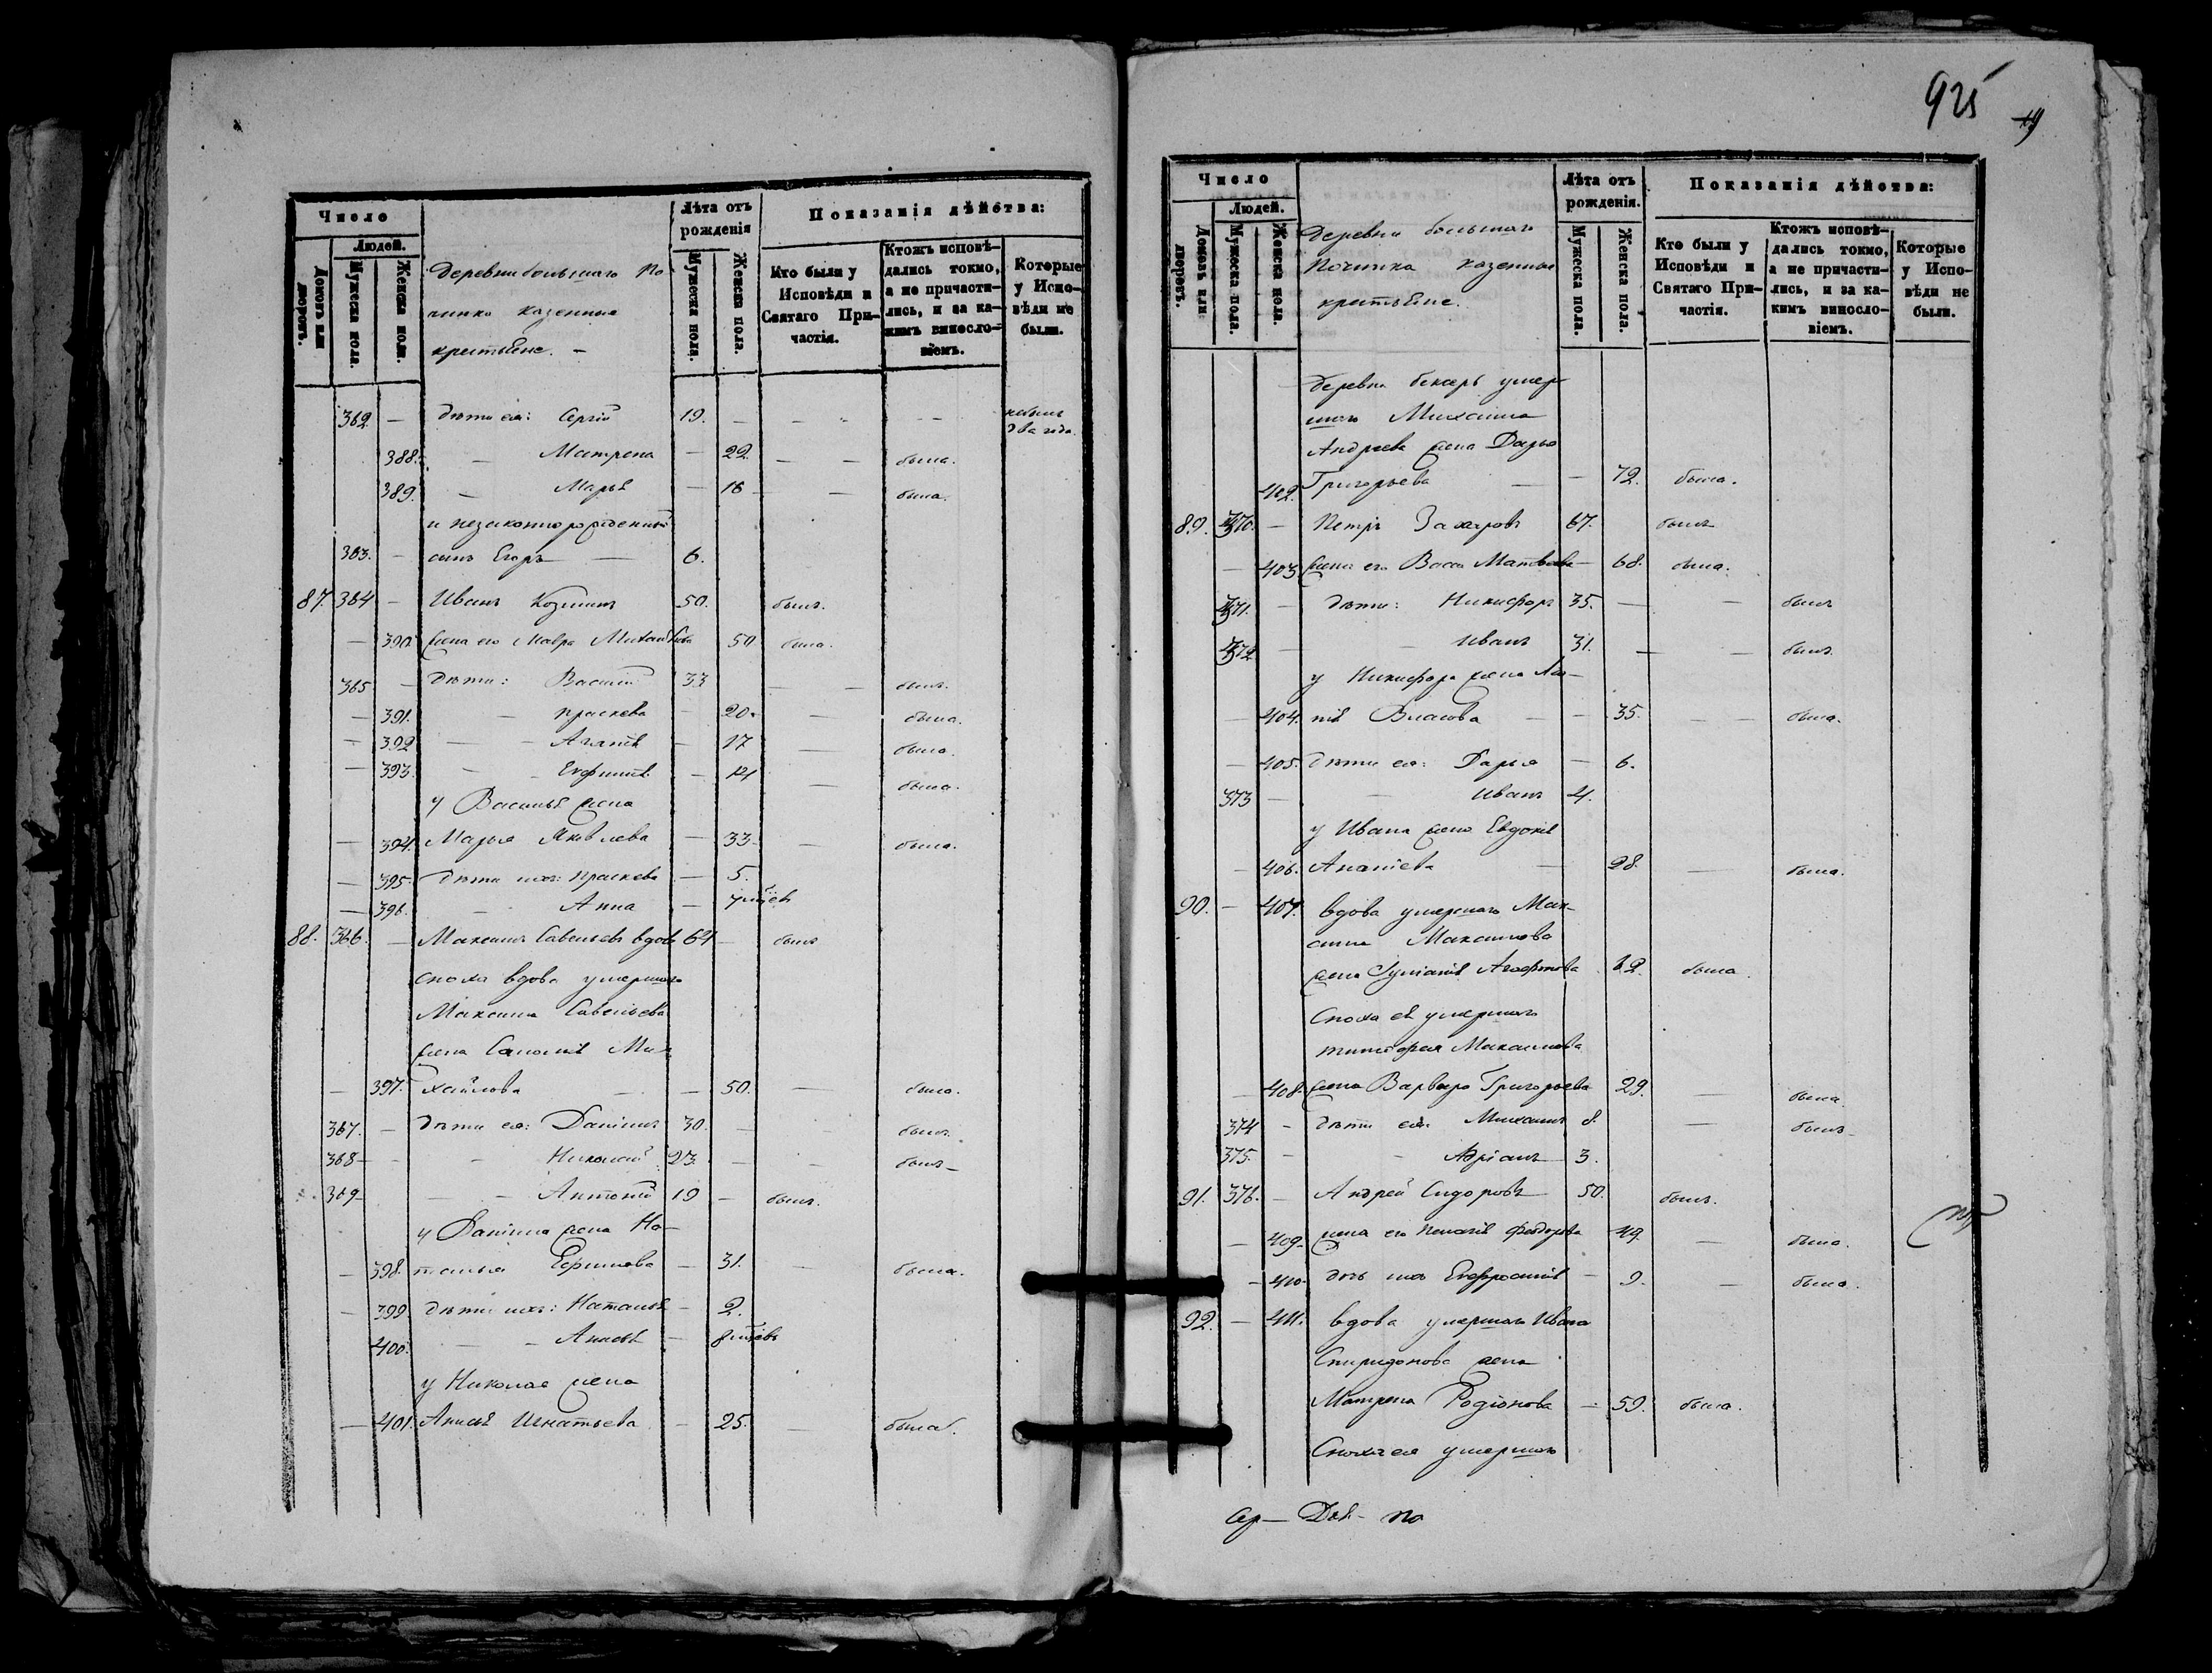 Число
Людей.
Домовъ или дворовъ.
Мужеска пола.
Женска пола.
Деревни большаго По
чинка казенные
крестьяне. –
Лѣта отъ рожденія
Мужеска пола.
Женска пола.
Показанія дѣйства:
Кто были у Исповѣди и Святаго Причастія.
Ктожъ исповѣдались токмо, а не причастились, и за какимъ винословіемъ.
Которые у Исповѣди не были.
362 — дѣти ея: Сергій 19. — — — небылъ два года
388. — Матрена — 22. — — была.
389. — Марья — 16 — — была.
и незаконнорожденный
363. — сынъ Егоръ — 6.
87. 364 — Иванъ Козминъ 50. былъ.
— 390 жена его Мавра Михайлова 50 была.
365 — дѣти: Василій 33 — — былъ.
— 391. — Праскева — 20. — была.
— 392 — Агапія — 17 — была.
— 393. — Евфимія — 14 — была.
у Василья жена
— 394. Марья Яковлева — 33 — была.
— 395. дѣти ихъ: Праскева — 5.
— 396. — Анна — 7 мцѣв
88. 366. — Максимъ Савельевъ вдовъ 64 — былъ
сноха вдова умершаго
Максима Савельева
жена Соломія Ми-
— 397. хайлова — — 50. — была.
367. — дѣти ея: Даніилъ 30. — былъ.
368 — — Николай 23. — — былъ
369 — — Антоній 19 — былъ.
у Даніила жена На-
— 398. талья Ефимова — 31. — была.
— 399. дѣти ихъ: Наталья — 2.
400. — Анисья — 8 мцѣвъ
у Николая жена
— 401. Анисья Игнатьева — 25. — была.
925
Число
Людей.
Домовъ или дворовъ.
Мужеска пола.
Женска пола.
Деревни большаго
Починка казенные
крестьяне.
Лѣта отъ рожденія.
Мужеска пола.
Женска пола.
Показанія дѣйства:
Кто были у Исповѣди и Святаго Причастія.
Ктожъ исповѣдались токмо, а не причастились, и за какимъ винословіемъ.
Которые у Исповѣди не были.
Деревни умер
шаго Михаила
Андреева жена Дарья
402. Григорьева — — 72. была.
89. 370. — Петръ Захаровъ 67. былъ
— 403 жена его Васса Матвѣева — 68. была.
371. — дѣти: Никифоръ 35. — — былъ
372 — — Иванъ 31. — — былъ.
у Никифора жена
— 404. Власова — — 35. — — была.
— 405. дѣти ея: Дарья — 6.
373 — — Иванъ 4.
у Ивана жена Евдокія
— 406. Ананіева — 28. — была.
90. — 407. вдова умершаго Мак-
сима Максимова
жена Агафонова 62. была.
Сноха ея умершаго
Тимофея Максимова
— 408. жена Варвара Григорьева 29. — была.
374 — дѣти ея: Михаилъ 8. — былъ
375. — — Адріанъ 3.
91. 376. — Андрей Сидоровъ 50. былъ.
— 409. жена его Пелагія Федорова 49. — была.
— 410. дочь ихъ Евфросинія — 9. — была.
92. — 411. вдова умершаго Ивана
Спиридонова жена
Матрена Родіонова — 59. была.
Сноха ея умершаго